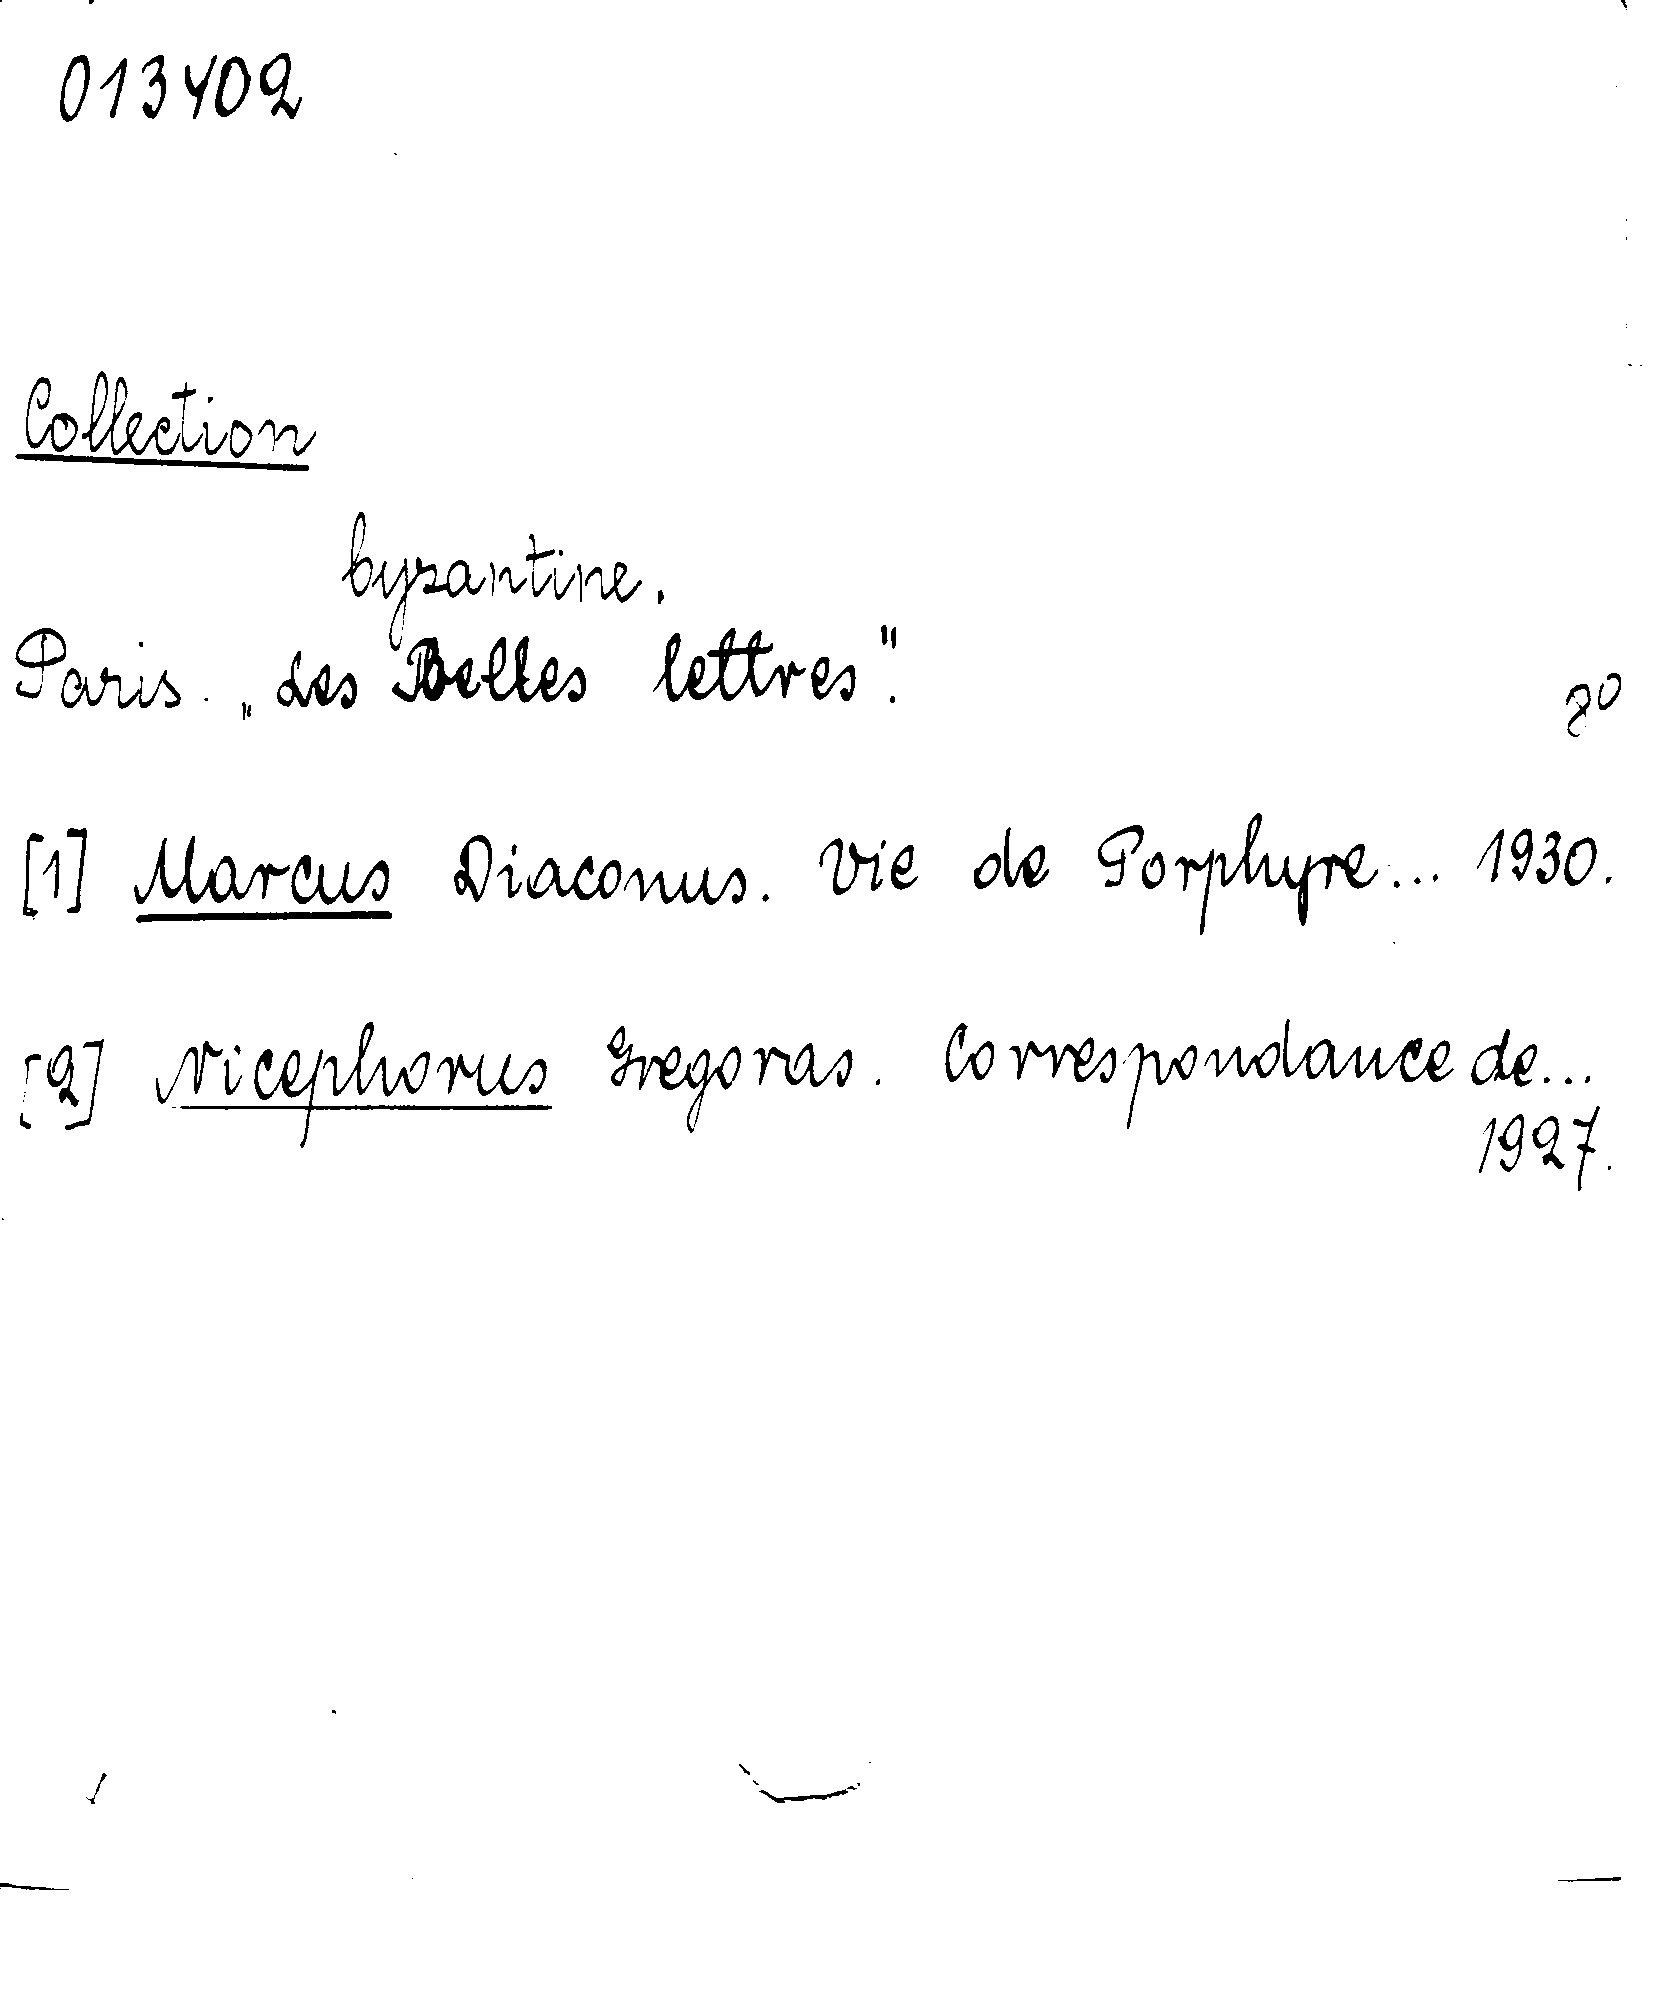 013402
Collection
byzantine.
Paris. „Les Belles lettres".
8°
[1] Marcus Diaconus. Vie de Porphyre... 1930.
[2] Nicephorus Gregoras. Correspondance de...
1927.